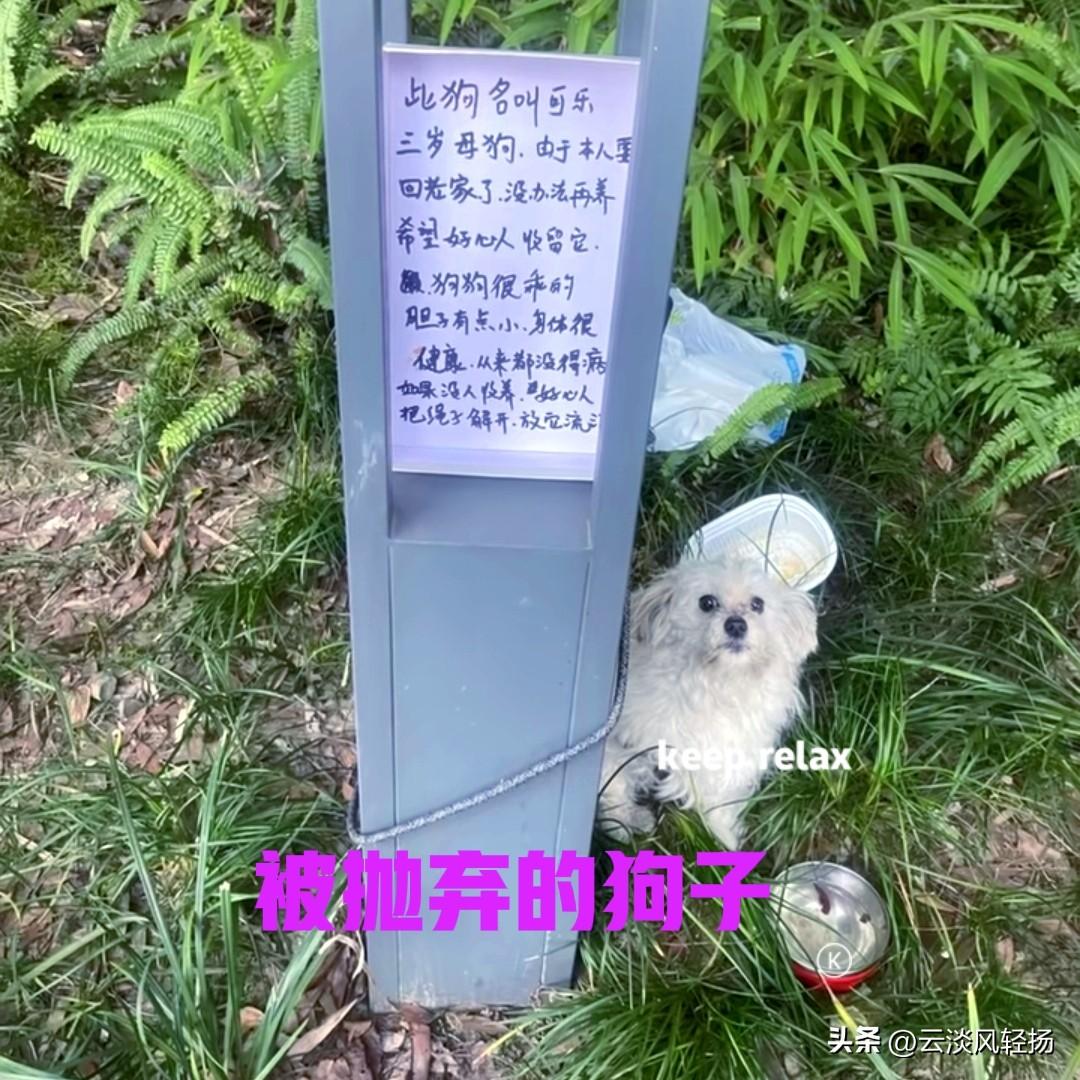 此狗名叫可乐
三岁母狗.由于本人要
回老家了.没办法再养
希望好心人收留它.
狗狗很乖的
胆子有点小.身体很
健康.从来都没得病
如果没人收养.好心人
把绳子解开.放它流
keep relax
被抛弃的狗子
K
头条 @云淡风轻扬